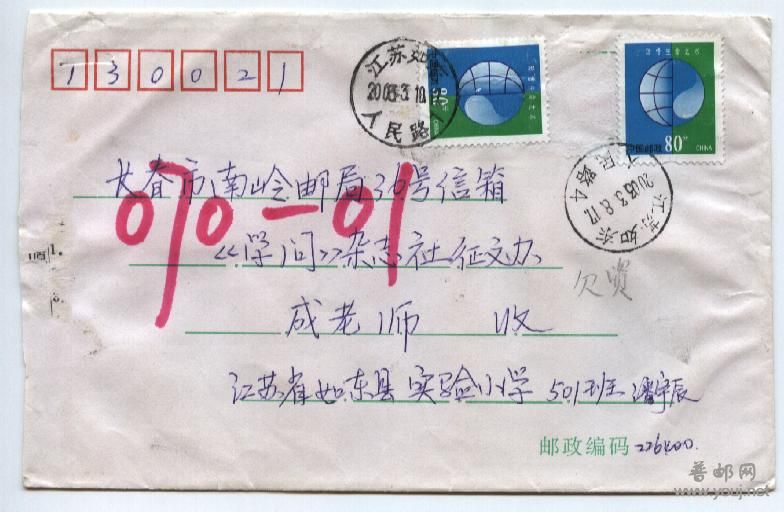 130021
江苏如东
2003.3.10
人民路
80
中国邮政 80分 CHINA
人民路
2003.3.8.17
江苏如东
长春市南岭邮局36号信箱
070-01
《学问》杂志社征文办
欠资
成老师 收
江苏省如东县实验小学 501班
邮政编码 226400
普邮网
www.youj.net